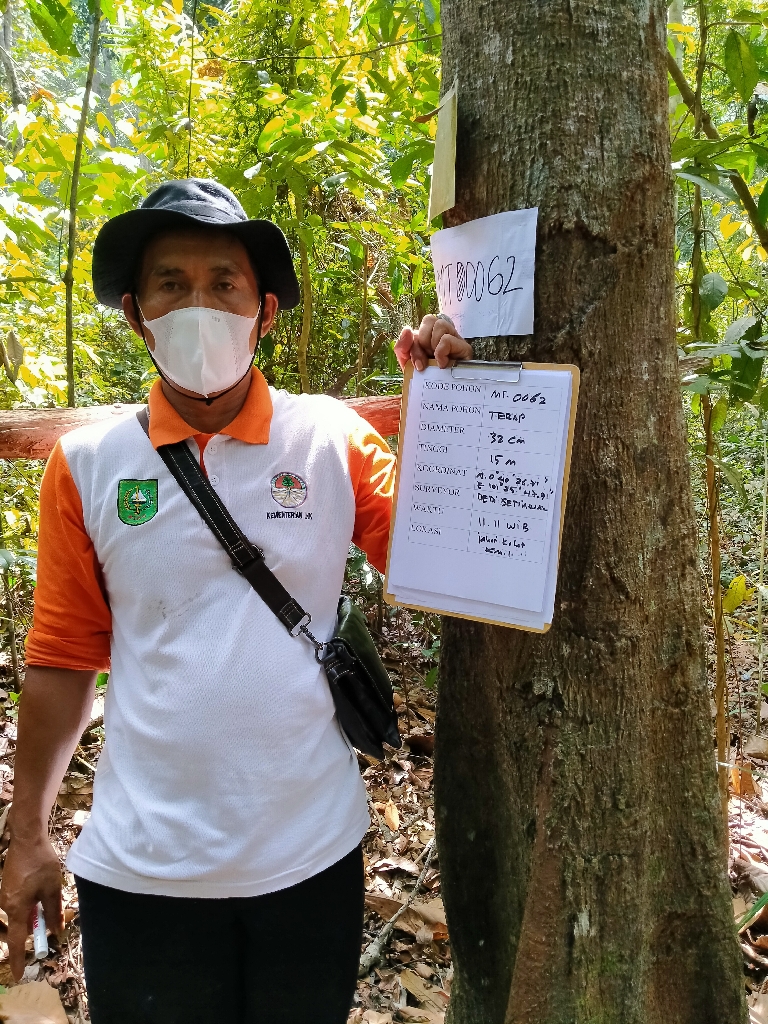 MT 00062
KODE POHON MT-0062
NAMA POHON TERAP
DIAMETER 32 cm
TINGGI 15 m
KOORDINAT N. 0° 40' 26.71"
E 101° 25' 47.91"
SURVEYOR DEDI SETIAWAN
WAKTU 11.11 WIB
LOKASI
KEMENTERIAN LHK